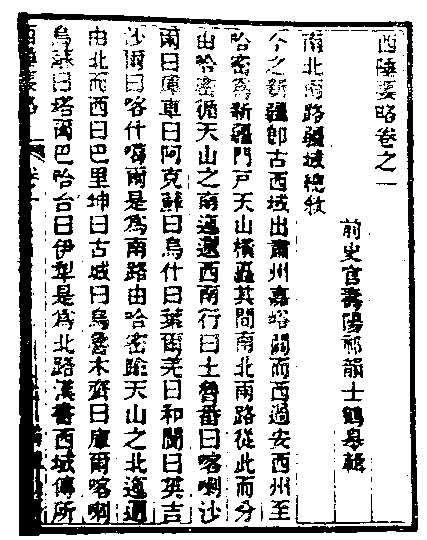 西陲要略卷之一
前史官壽陽祁韻士鶴皋輯
南北兩路疆域總敘
今之新疆卽古西域出肅州嘉峪關而西過安西州至
哈密爲新疆門戶天山橫矗其間南北兩路從此而分
由哈密循天山之南迤邐西南行曰土魯番曰喀喇沙
爾曰庫車曰阿克蘇曰烏什曰葉爾羌曰和闐曰英吉
沙爾曰喀什噶爾是爲南路由哈密踰天山之北迤邐
由北而西曰巴里坤曰古城曰烏魯木齊曰庫爾喀喇
烏蘇曰塔爾巴哈台曰伊犁是爲北路漢書西域傳所
西陲要略